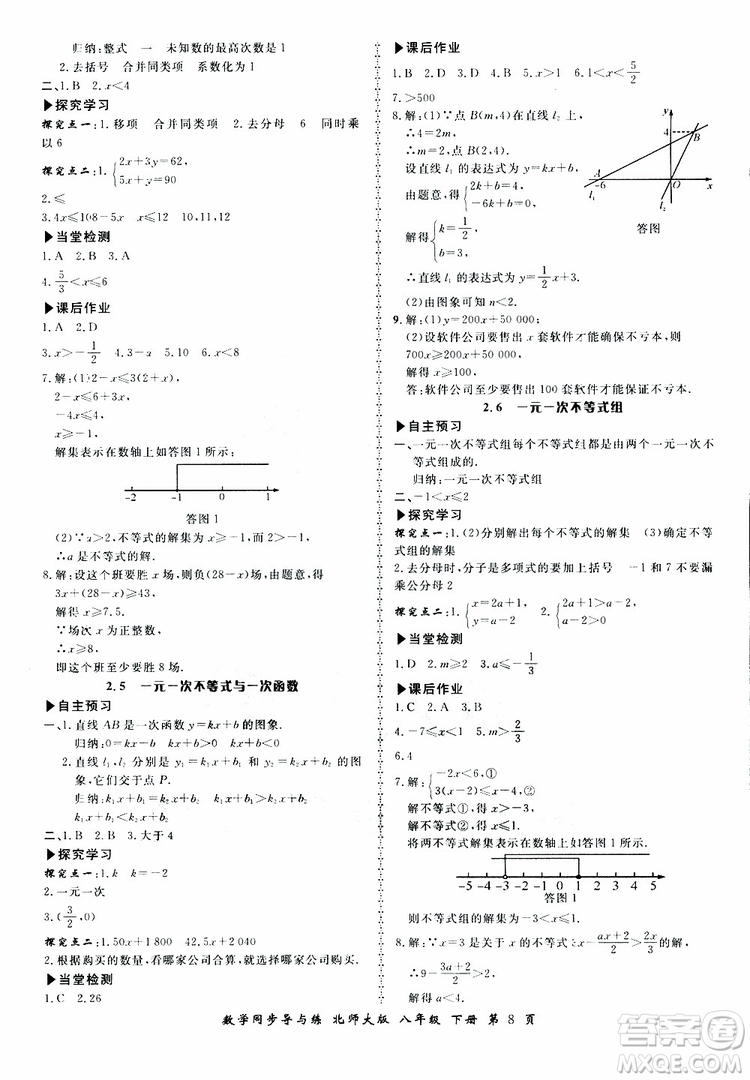 归纳:整式 一 未知数的最高次数是1
2.去括号 合并同类项 系数化为1
二、1.B 2.x<4
▶探究学习
探究点一:1.移项 合并同类项 2.去分母 6 同时乘
以6
探究点二:1.{2x+3y=62,
5x+y=90
2.≤
3.4x≤108-5x x≤12 10,11,12
▶当堂检测
1.A 2.B 3.A
4.5/3<x≤6
▶课后作业
1.A 2.D
3.x>-1/2 4.13 5.x≤10 6.x<8
7.解:(1)2-x≤3(2+x),
2-x≤6+3x,
-4x≤4,
x≥-1.
解集表示在数轴上如答图1所示:
-2 -1 0 1
答图1
(2)∵a>2,不等式的解集为x≥-1,
∴a是不等式的解.
8.解:设这个班要胜x场,则负(28-x)场,由题意,得
3x+(28-x)≥43,
解得x≥7.5.
∵场次x为正整数,
∴x≥8.
即这个班至少要胜8场.
2.5 一元一次不等式与一次函数
▶自主预习
一、1.直线AB是一次函数y=kx+b的图象.
归纳:0=kx-b kx+b>0 kx+b<0
2.直线l₁,l₂分别是y₁=k₁x+b与y₂=k₂x+b的图
象,它们交于点P.
归纳:k₁x+b₁=k₂x+b₂ k₁x+b₁>k₂x+b₂
k₁x+b₁<k₂x+b₂
二、1.B 2.B 3.大于4
▶探究学习
探究点一:1.k k=-2
2.一元一次
3.(3/2,0)
探究点二:1.50x+1 800 42.5x+2 040
2.根据购买的数量,看哪家公司合算,就让哪家公司购买.
▶当堂检测
1.C 2.26
▶课后作业
1.B 2.D 3.B 4.A 5.x<4 6.x<5/2
7.>500
8.解:(1)∵点B(m,4)在直线l₂上,
∴4=2m,
∴m=2,点B(2,4).
设直线l₁的表达式为y=kx+b,
由题意,得{2k+b=4,
-6k+b=0,
解得{k=1/2,
b=3.
∴直线l₁的表达式为y=1/2x+3.
(2)由图象可知n<2.
y
4
B
A
-6
O
x
l₁
l₂
答图
9.解:(1)y=200x+50 000;
(2)设软件公司要售出x套软件才能确保不亏本,则
700x≥200x+50 000,
解得x≥100.
答:软件公司至少要售出100套软件才能保证不亏本.
2.6 一元一次不等式组
▶自主预习
一、一元一次不等式组每个不等式组都是由一元一次不
等式组成的.
归纳:一元一次不等式组
二、-1<x≤2
▶探究学习
探究点一:1.(2)分别解出每个不等式的解集 (3)确定不等
式组的解集
2.去分母时,分子是多项式的要加上括号 -1和7不要漏
乘公分母2
探究点二:1.{x=2a+1,
y=a-2
▶当堂检测
1.D 2.m≥2 3.A
▶课后作业
1.C 2.A 3.B
4.-7≤x<1 5.m>-2/3
6.4
7.解:{-2x<6,①
3(x-2)≤x-4,②
解不等式①,得x>-3,
解不等式②,得x≤1.
将两不等式的解集表示在数轴上如答图1所示:
-5 -4 -3 -2 -1 0 1 2 3 4 5
答图1
则不等式组的解集为-3<x≤1.
8.解:∵x=3是关于x的不等式3x-(ax+2)/2>2x/3的解,
∴9-(3a+2)/2>2,
数学同步导与练 北师大版 八年级 下册 第 8 页